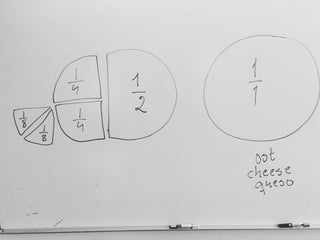 1/8
1/8
1/4
1/4
1/2
1/1
ost
cheese
queso